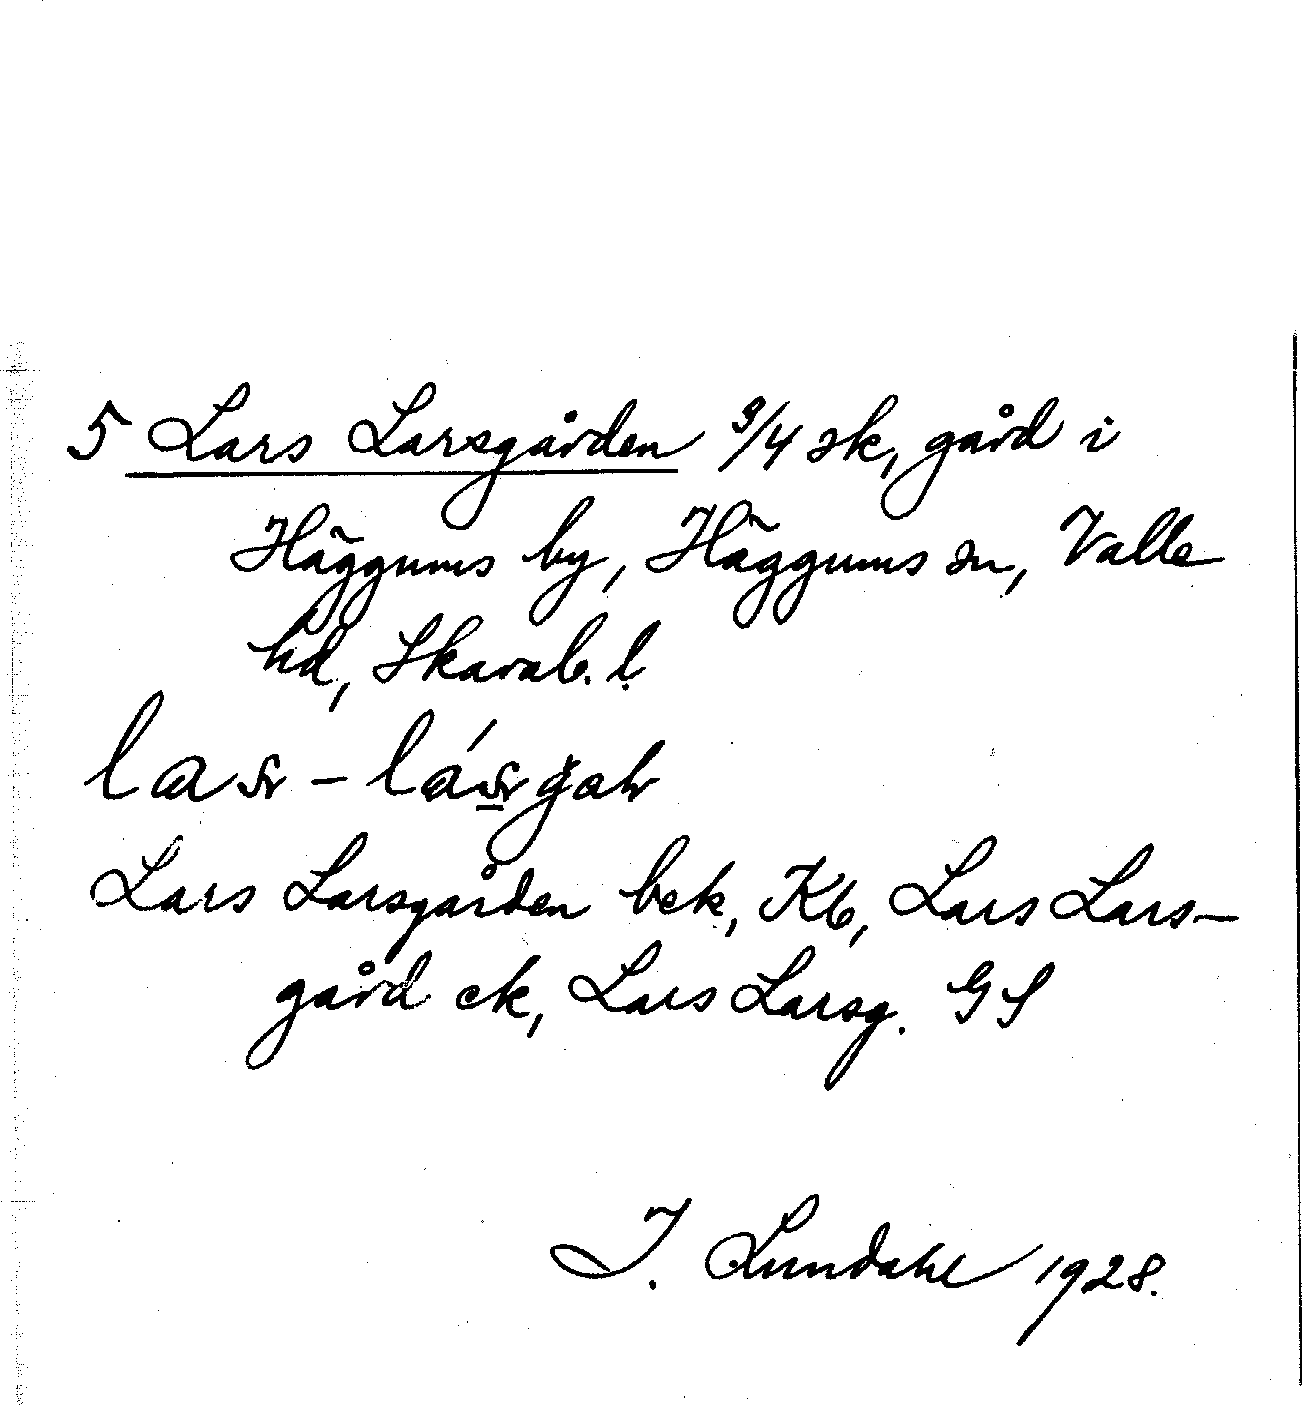 5 Lars Larsgården 3/4 sk, gård i
Häggums by, Häggums sn, Valle
hd, Skarab. l.
Lars Larsgården bek, Kb, Lars Lars-
gård ek, Lars Larsg. GS
I. Lundahl 1928.